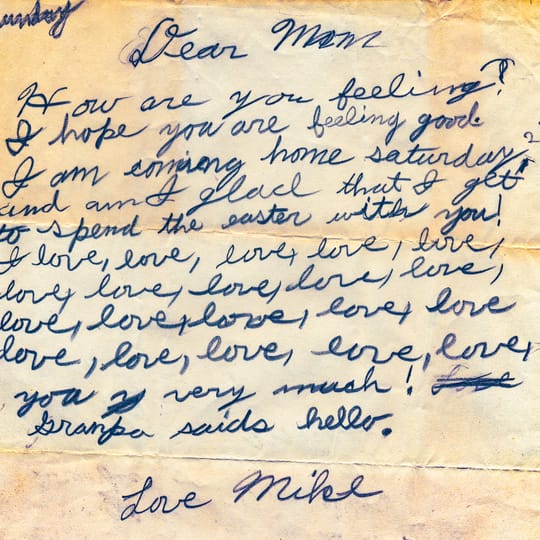 Dear Mom
How are you feeling?
I hope you are feeling good.
I am coming home saturday,
and am I glad that I get
to spend the easter with you!
I love, love, love, love, love,
love, love, love, love, love,
love, love, love, love, love
love, love, love, love, love,
you very much!
Granpa saids hello.
Love Mike